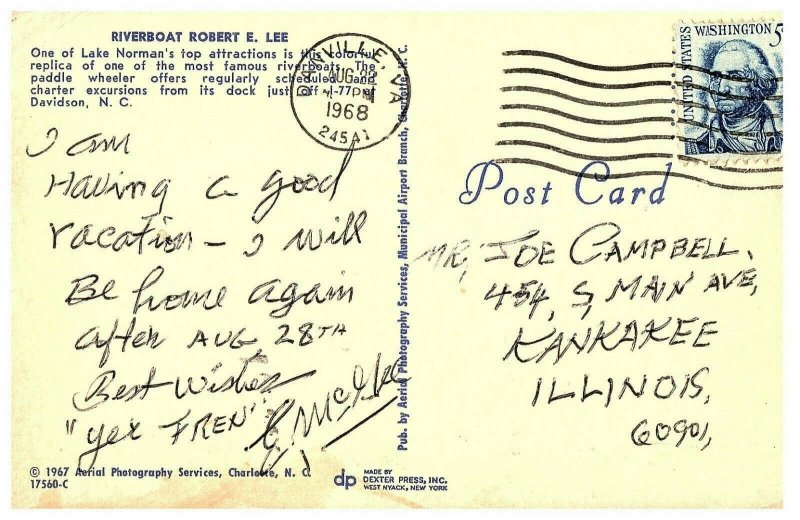 RIVERBOAT ROBERT E. LEE
One of Lake Norman's top attractions is this colorful
replica of one of the most famous riverboats. The
paddle wheeler offers regularly scheduled and
charter excursions from its dock just off I-77 at
Davidson, N. C.
DANVILLE, VA
AUG 28
PM
1968
245A1
UNITED STATES
WASHINGTON 5
I am
Having a good
vacation - I will
Be home again
after AUG 28TH
Best Wishes
"yer FREN"
© 1967 Aerial Photography Services, Charlotte, N. C.
17560-C
Pub. by Aerial Photography Services, Municipal Airport Branch, Charlotte, N. C.
dp
MADE BY
DEXTER PRESS, INC.
WEST NYACK, NEW YORK
Post Card
MR, JOE CAMPBELL,
454, S, MAIN AVE,
KANKAKEE
ILLINOIS,
60901,